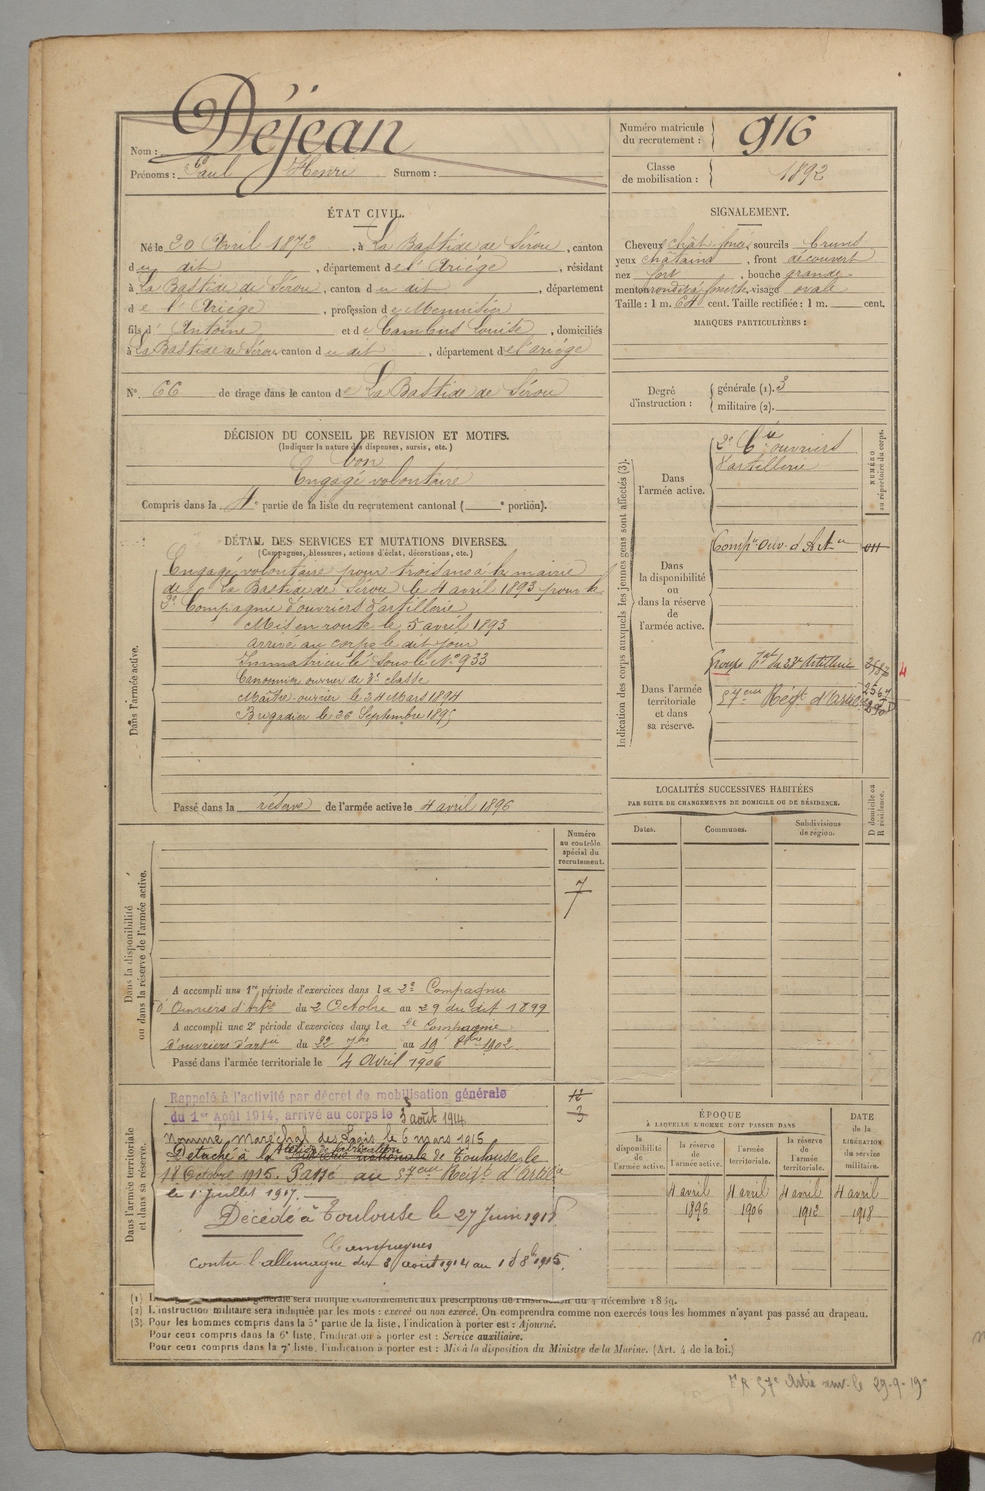 Nom : Déjean
Prénoms : Paul Henri Surnom :
Numéro matricule du recrutement : 916
Classe de mobilisation : 1892
ÉTAT CIVIL.
Né le 20 Avril 1872, à La Bastide de Sérou, canton
du dit, département de l'Ariège, résidant
à La Bastide de Sérou, canton du dit, département
de l'Ariège, profession de Menuisier
fils d'Antoine et de Cambus Louise, domiciliés
à La Bastide de Sérou canton du dit, département de l'ariège
N° 66 de tirage dans le canton de La Bastide de Sérou
SIGNALEMENT.
Cheveux chât. foncés sourcils bruns
yeux chatains, front découvert
nez fort, bouche grande
menton rond à fossette, visage ovale
Taille : 1 m. 64 cent. Taille rectifiée : 1 m. cent.
MARQUES PARTICULIÈRES :
Degré d'instruction : générale (1). 3
militaire (2).
DÉCISION DU CONSEIL DE REVISION ET MOTIFS.
(Indiquer la nature des dispenses, sursis, etc.)
bon
Engagé volontaire
Compris dans la 4e partie de la liste du recrutement cantonal ( e portion).
DÉTAIL DES SERVICES ET MUTATIONS DIVERSES.
(Campagnes, blessures, actions d'éclat, décorations, etc.)
Dans l'armée active.
Engagé volontaire pour trois ans à la mairie
de La Bastide de Sérou le 4 avril 1893 pour la
2e Compagnie d'ouvriers d'artillerie
Mis en route le 5 avril 1893
arrivé au corps le dit jour
Immatriculé sous le N° 933
Canonnier ouvrier de 2e classe
Maître ouvrier le 24 Mars 1894
Brigadier le 26 Septembre 1895
Passé dans la réserve de l'armée active le 4 avril 1896
Indication des corps auxquels les jeunes gens sont affectés (3).
NUMÉRO au répertoire du corps.
Dans l'armée active.
2e Cie ouvriers
d'artillerie
Dans la disponibilité ou dans la réserve de l'armée active.
Compie Ouv. d'Artie
Dans l'armée territoriale et dans sa réserve.
Groupe Tal du 23e Artillerie
57eme Regt d'Artie
4
LOCALITÉS SUCCESSIVES HABITÉES
PAR SUITE DE CHANGEMENTS DE DOMICILE OU DE RÉSIDENCE.
Dates. Communes. Subdivisions de région.
D domicile ou R résidence.
Dans la disponibilité ou dans la réserve de l'armée active.
Numéro au contrôle spécial du recrutement.
7
A accompli une 1re période d'exercices dans la 2e Compagnie
d'Ouvriers d'Artie du 2 Octobre au 29 du dit 1899
A accompli une 2e période d'exercices dans la 2e Compagnie
d'ouvriers d'artie du 22 7bre au 19 8bre 1902
Passé dans l'armée territoriale le 4 Avril 1906
Dans l'armée territoriale et dans sa réserve.
Rappelé à l'activité par décret de mobilisation générale
du 1er Août 1914, arrivé au corps le 3 août 1914
12
3
Nommé Maréchal des Logis le 6 mars 1915
Détaché à la Poudrerie nationale de Toulouse le
18 Octobre 1915. Passé au 57eme Regt d'Artie
le 1er juillet 1917.
Décédé à Toulouse le 27 Juin 1918
Campagnes
contre l'allemagne du 3 août 1914 au 18 8bre 1915.
ÉPOQUE
À LAQUELLE L'HOMME DOIT PASSER DANS
DATE de la LIBÉRATION du service militaire.
la disponibilité de l'armée active. la réserve de l'armée active. l'armée territoriale. la réserve de l'armée territoriale.
4 avril 4 avril 4 avril 4 avril
1896 1906 1912 1918
générale sera indiqué conformément aux prescriptions de l'instruction du 4 décembre 1889.
(2) L'instruction militaire sera indiquée par les mots : exercé ou non exercé. On comprendra comme non exercés tous les hommes n'ayant pas passé au drapeau.
(3) Pour les hommes compris dans la 5e partie de la liste, l'indication à porter est : Ajourné.
Pour ceux compris dans la 6e liste, l'indication à porter est : Service auxiliaire.
Pour ceux compris dans la 7e liste, l'indication à porter est : Mis à la disposition du Ministre de la Marine. (Art. 4 de la loi.)
57e Artie env. le 29-9-19